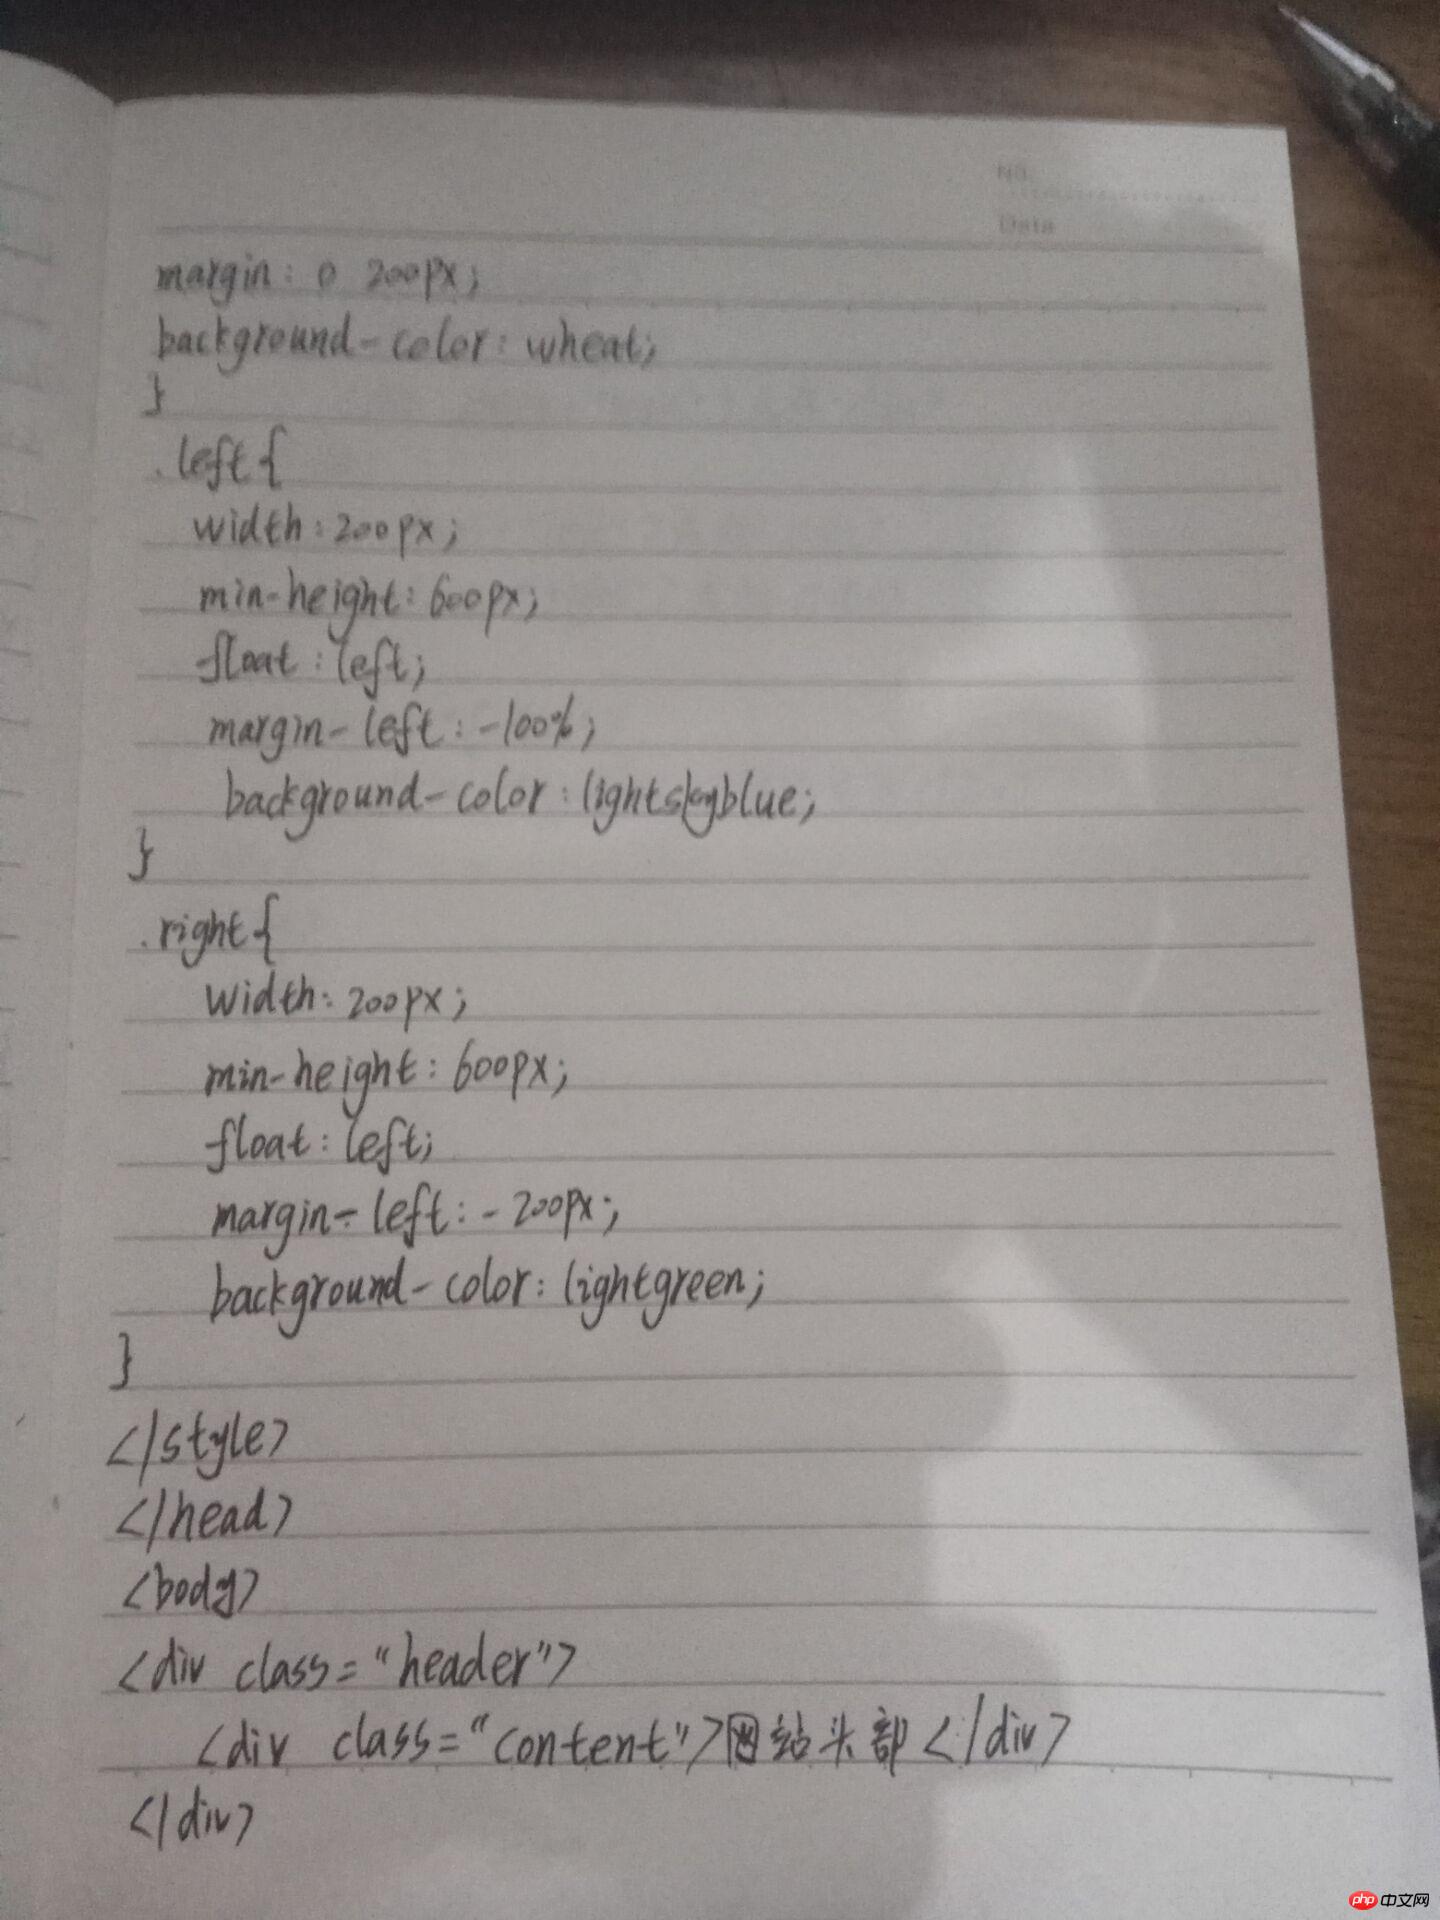 No.
Data
margin: 0 200px;
background-color: wheat;
}
.left{
width:200px;
min-height: 600px;
float: left;
margin-left: -100%;
background-color: lightskyblue;
}
.right{
width: 200px;
min-height: 600px;
float: left;
margin-left: -200px;
background-color: lightgreen;
}
</style>
</head>
<body>
<div class="header">
<div class="content">网站头部</div>
</div>
php中文网